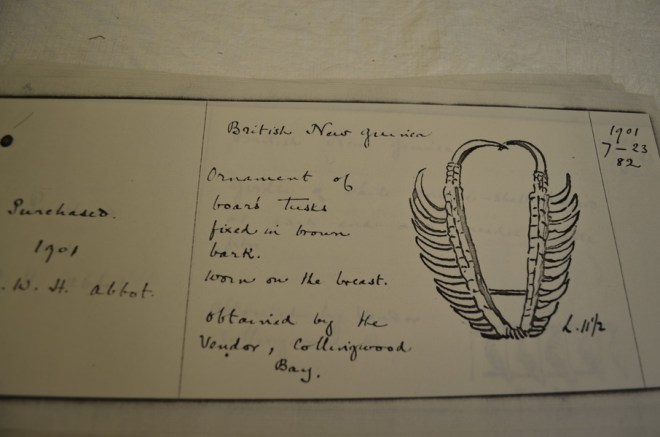 Purchased.
1901
. W. H. Abbot.
British New Guinea
Ornament of
boars tusks
fixed in brown
bark.
worn on the breast.
obtained by the
Vendor, Collingwood
Bay.
L. 11 1/2
1901
7 — 23
82